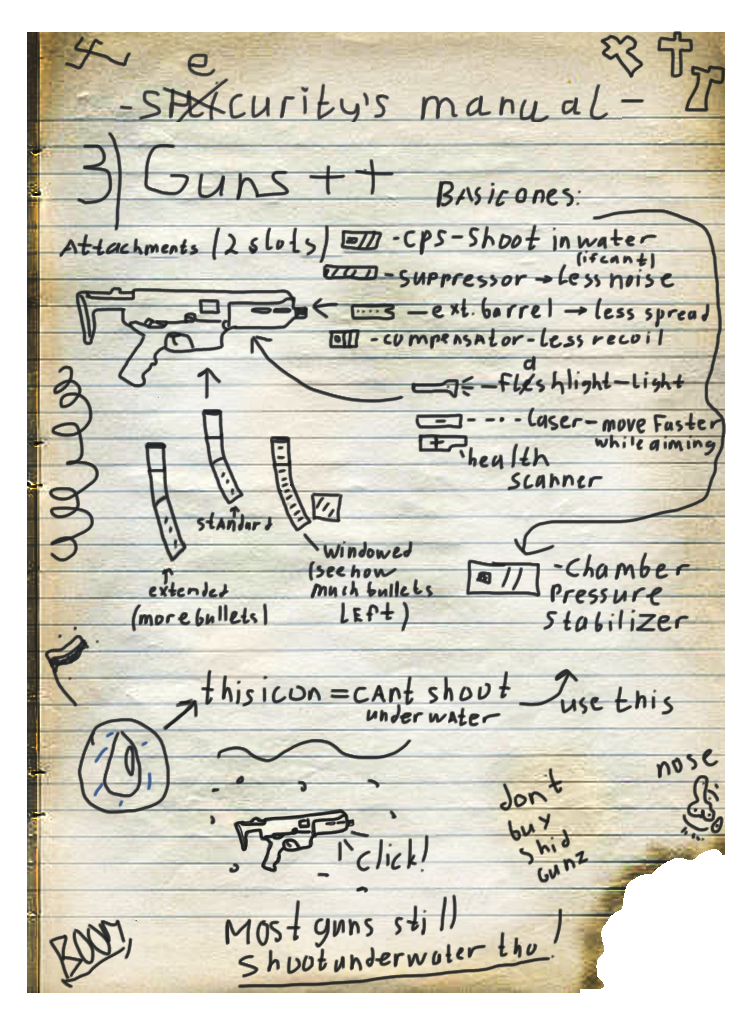 e
-security's manual-
3) Guns ++
Basic ones:
Attachments (2 slots)
-CPS-Shoot in water
(if cant)
-suppressor → Less noise
-ext. barrel → less spread
-compensator-Less recoil
a
-fleshlight-light
- - · - Laser-move Faster
while aiming
health
scanner
standard
extended
(more bullets)
windowed
(see how
much bullets
LEft)
-Chamber
Pressure
Stabilizer
this icon = cant shoot
under water
use this
nose
don't
buy
shid
gunz
click!
BOOM
Most guns still
Shoot underwater tho!